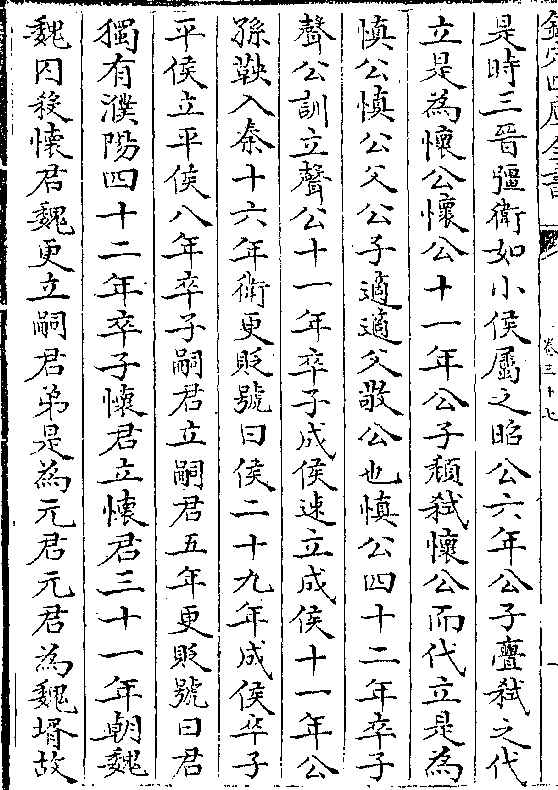 欽定四庫全書
卷三十七
是時三晉彊衛如小侯屬之昭公六年公子亹弑之代
立是為懷公懷公十一年公子頽弑懷公而代立是為
慎公慎公父公子適適父敬公也慎公四十二年卒子
聲公訓立聲公十一年卒子成侯速立成侯十一年公
孫鞅入秦十六年衛更貶號曰侯二十九年成侯卒子
平侯立平侯八年卒子嗣君立嗣君五年更貶號曰君
獨有濮陽四十二年卒子懷君立懷君三十一年朝魏
魏囚殺懷君魏更立嗣君弟是為元君元君為魏壻故